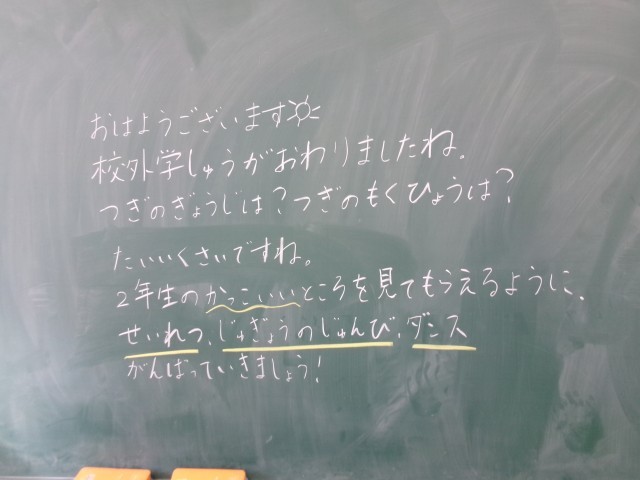 おはようございます
校外学しゅうがおわりましたね。
つぎのぎょうじは?つぎのもくひょうは?
たいいくさいですね。
2年生のかっこいいところを見てもらえるように、
せいれつ、じゅぎょうのじゅんび、ダンス
がんばっていきましょう!